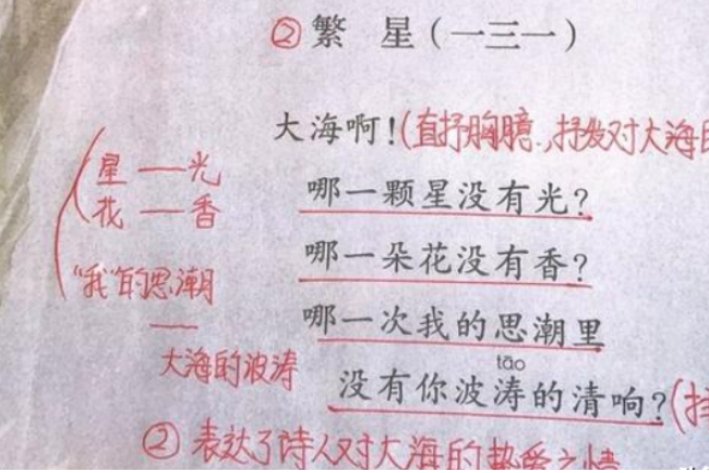 ②繁 星（一三一）
大海啊！(直抒胸臆.,抒发对大海
星一光
哪一颗星没有光？
一香
哪一朵花没有香？
"我"的思潮
哪一次我的思潮里
—
大海的波涛
tāo
没有你波涛的清响？(
②表达了诗人对大海的热爱之情